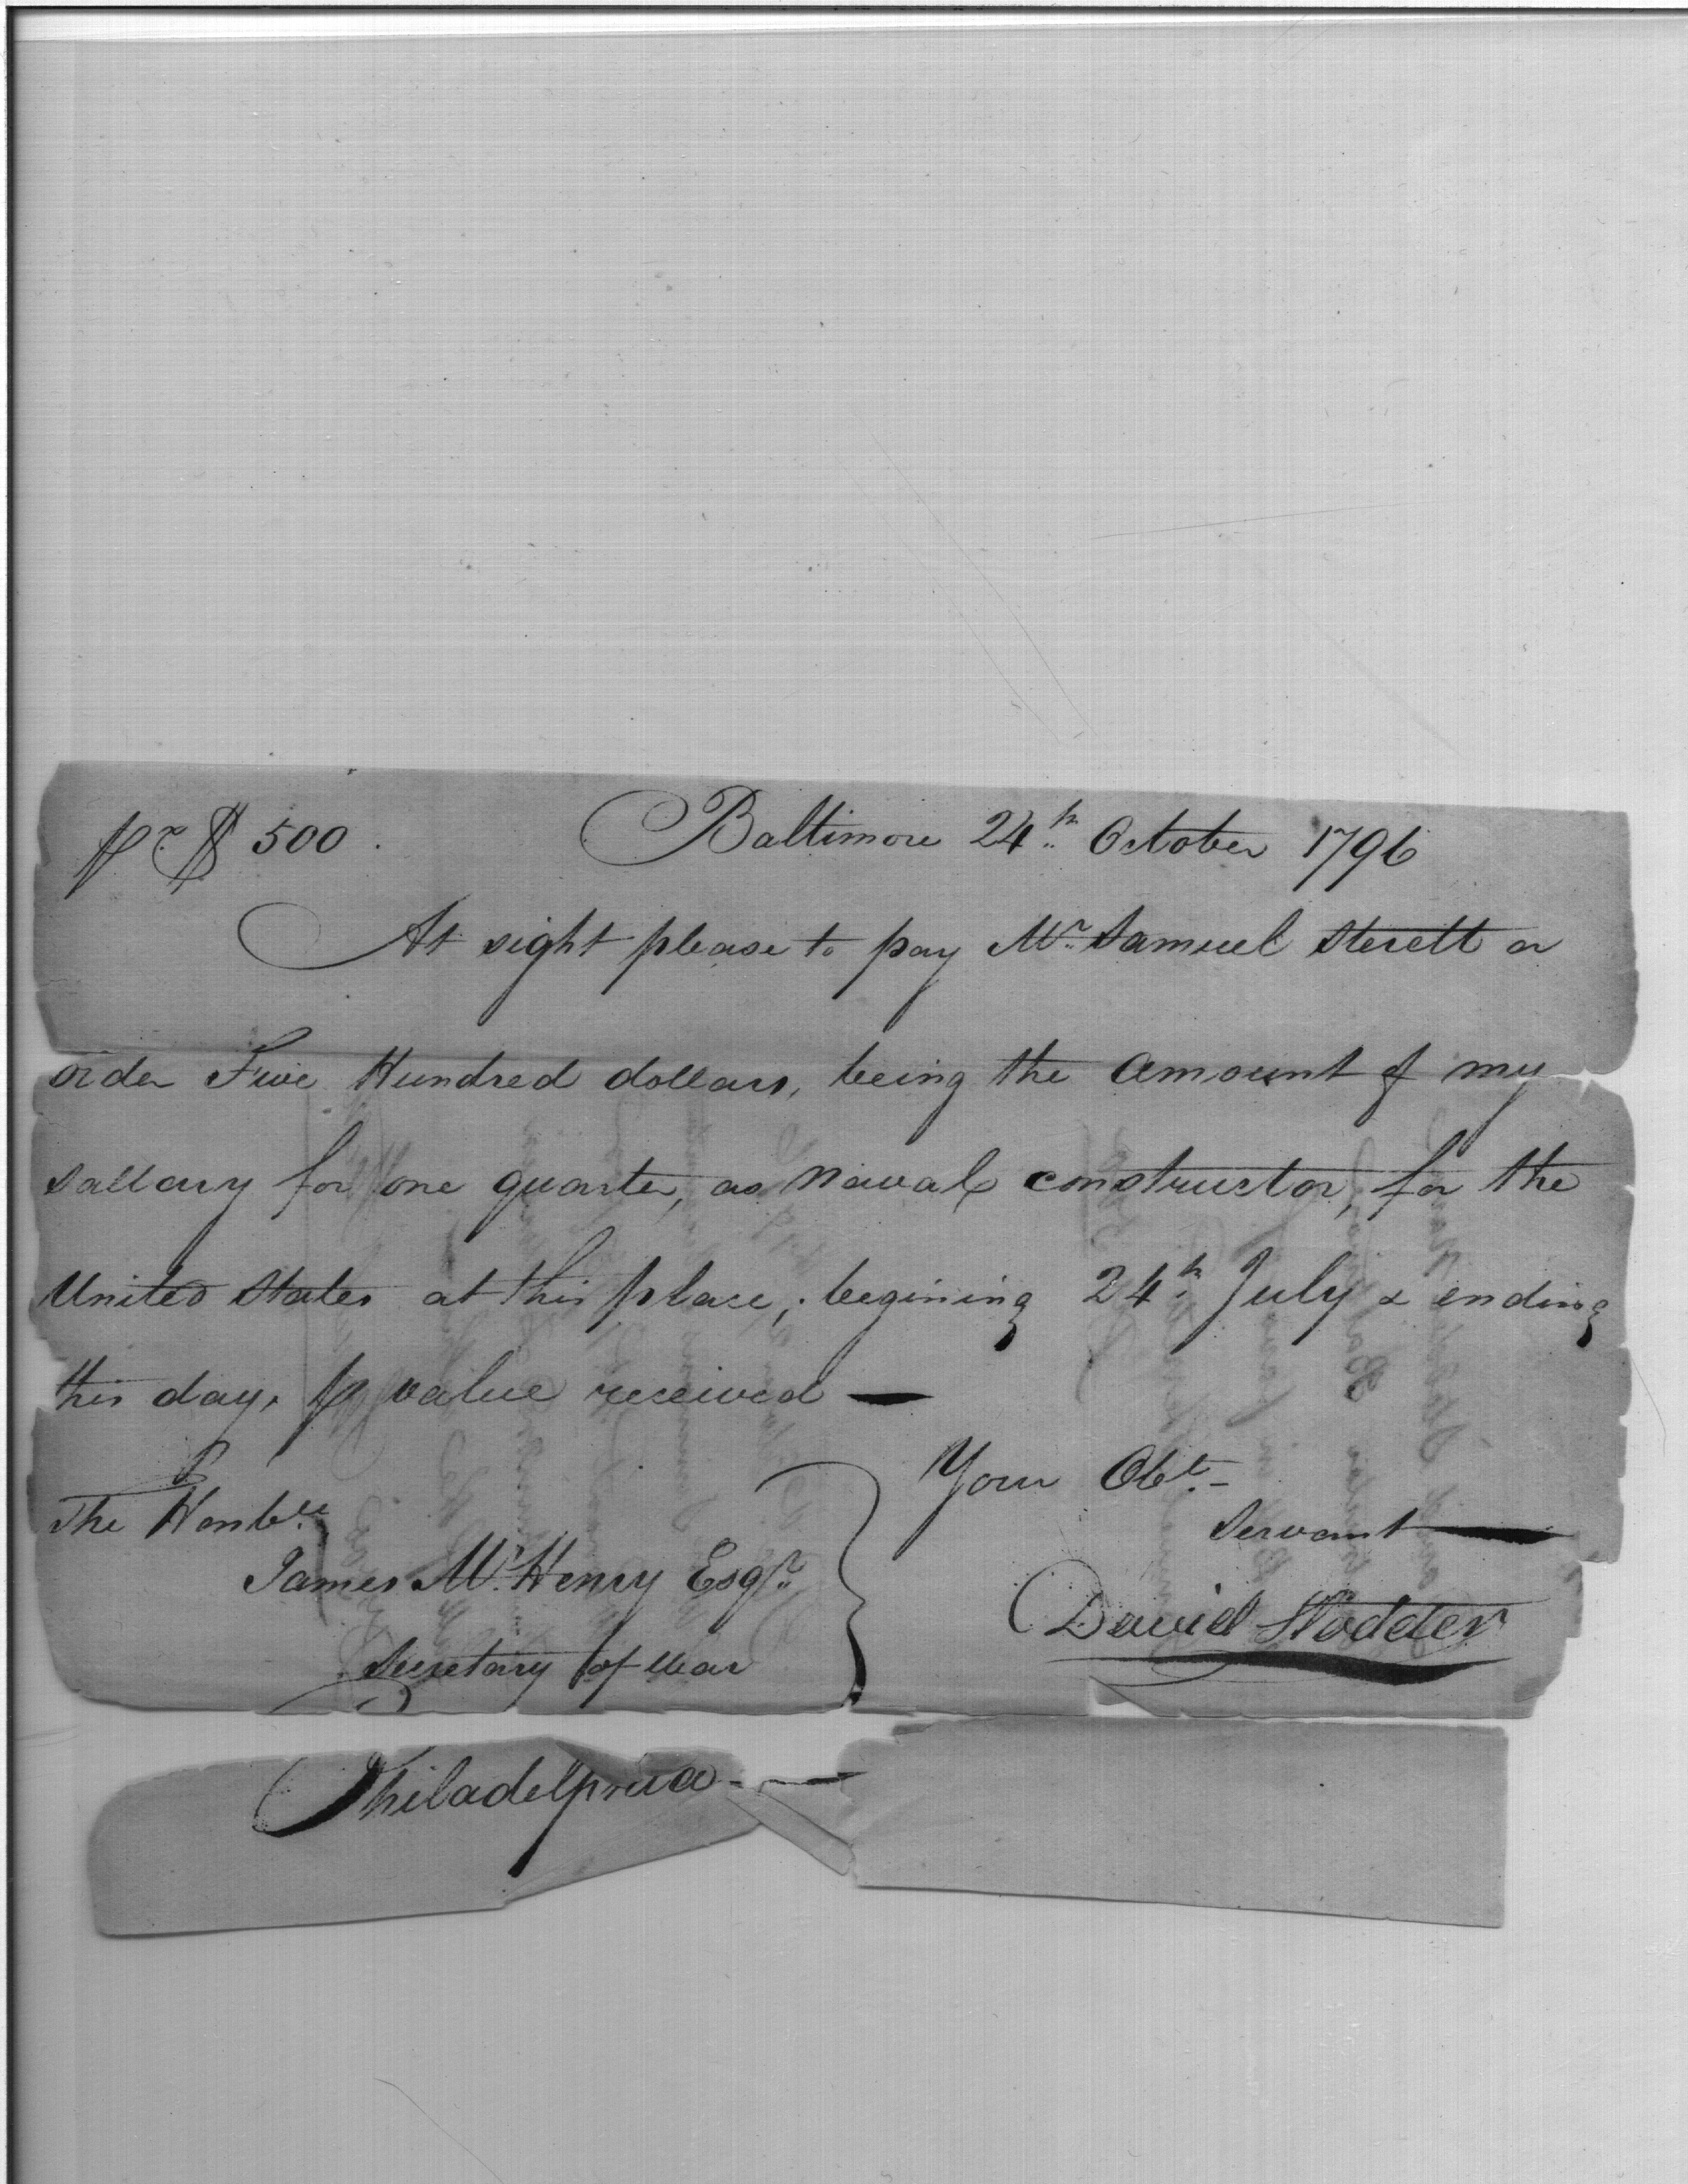 pr. $ 500. Baltimore 24th October 1796
At sight please to pay Mr. Samuel Sterett or
order Five Hundred dollars, being the amount of my
sallary for one quarter, as Naval constructor, for the
United States at this place, begining 24th July & ending
this day, pr value received —
The Honble.
James McHenry Esqr.
Secretary of War
Philadelphia —
Your Obt.
Servant
David Stodder